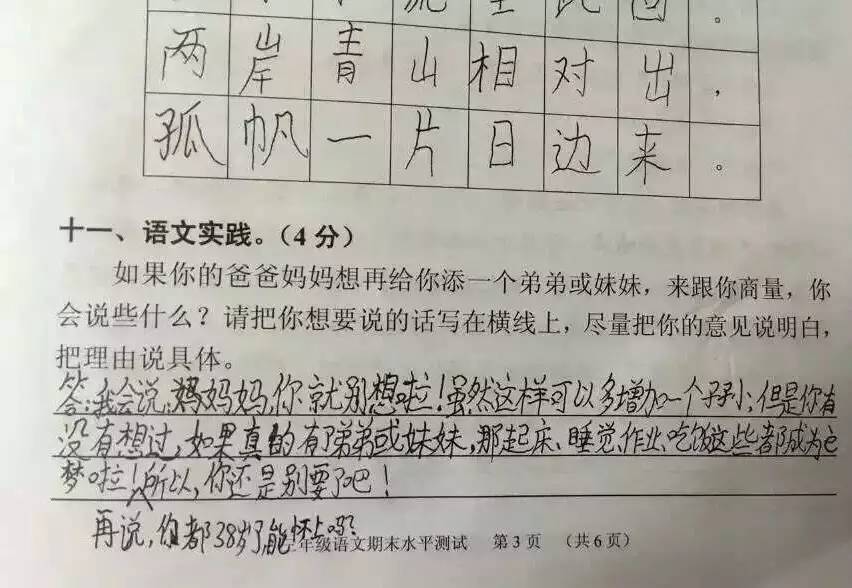 流至此回。
两岸青山相对出，
孤帆一片日边来。
十一、语文实践。（4 分）
如果你的爸爸妈妈想再给你添一个弟弟或妹妹，来跟你商量，你
会说些什么？请把你想要说的话写在横线上，尽量把你的意见说明白，
把理由说具体。
答：我会说：妈妈妈，你就别想啦！虽然这样可以多增加一个孩子；但是你有
没有想过，如果真的有弟弟或妹妹，那起床、睡觉、作业、吃饭这些都成为
梦啦！所以，你还是别要了吧！
再说，你都38岁了，能怀上吗？
年级语文期末水平测试 第 3 页 （共 6 页）